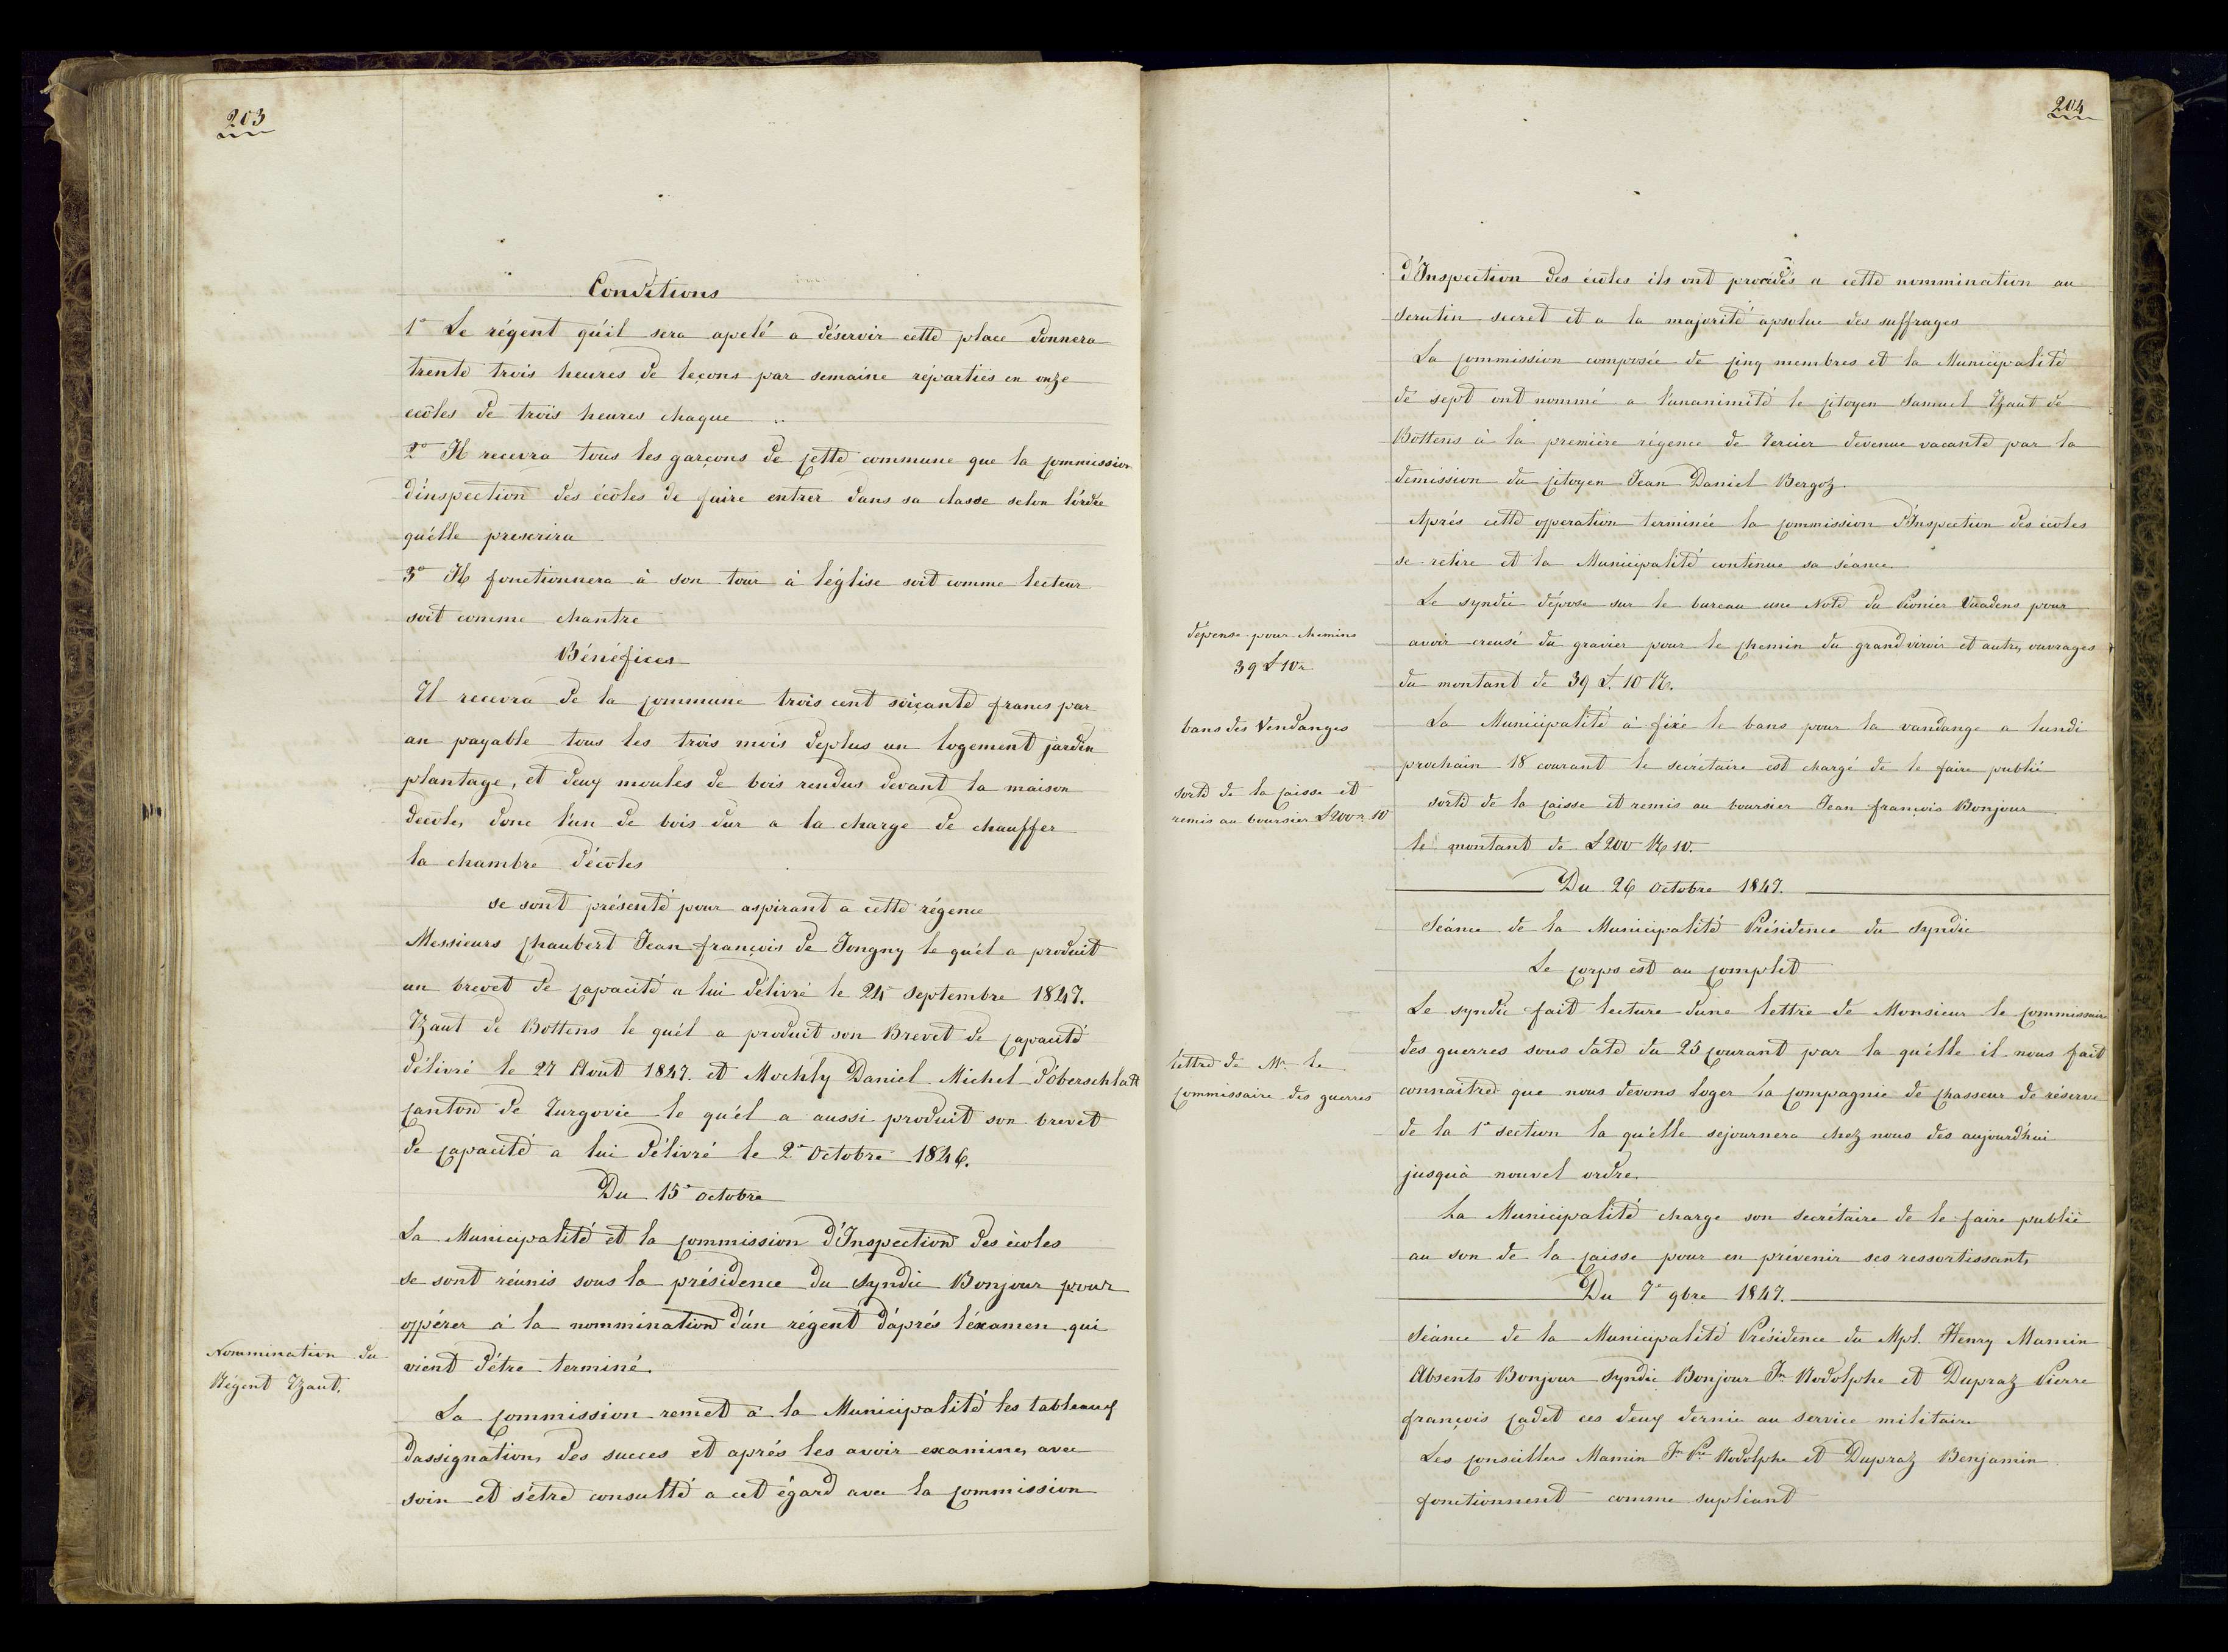 203
Conditions
1° Le régent qu'il sera apelé a déservir cette place donnera
trente trois heures de leçons par semaine réparties en onze
ecôles de trois heures chaque
2° Il recevra tous les garçons de cette commune que la commission
d'inspection des écôles de faire entrer dans sa classe selon l'ordre
qu'élle prescrira
3° Il fonctionnera à son tour à l'église soit comme lecteur
soit comme chantre
Bénéfices
Il recevra de la commune trois cent soiçante francs par
an payable tous les trois mois deplus un logement jardin
plantage, et deux moules de bois rendus devant la maison
decôle, donc l'un de bois dur a la charge de chauffer
la chambre d'écoles
se sont présenté pour aspirant a cette régence
Messieurs Chaubert Jean françois de Jongny le quél a produit
un brevet de capacité a lui délivré le 24 Septembre 1847.
Tzaut de Bottens le quél a produit son Brevet de capacité
délivré le 27 Aout 1847. et Mochly Daniel Michel d'óberschlatt
canton de Turgovie le qu'él a aussi produit son brevet
de capacité a lui délivré le 2° Octobre 1846.
Du 15° octobre
La Municipalité et la commission d'Inspection des ècoles
se sont réunis sous la présidence du Syndic Bonjour pour
Nommination du
Régent Tzaut.
oppérer à la nommination d'ún régent d'áprés l'éxamen qui
vient d'étre terminé
La commission remet à la Municipalité les tableaux
dassignation, des succes et aprés les avoir examines avec
soin et s'étre consulté a cet égard avec la commission
204
d'Inspection des écôles ils ont procédés a cette nommination au
Scrutin secret et a la majorité apsolue des suffrages
La commission composée de cinq membres et la Municipalité
de sept ont nommé a l'unanimité le citoyen Samuel Tzaut de
Bottens à la premiére régence de Tercier devenue vacante par la
demission du citoyen Jean Daniel Bergoz.
Aprés cette opperation terminée la commission d'Inspection des écôles
se retire et la Municipalité continue sa séance
dépense pour chemins
39 £ 10 r
Le syndic dépose sur le bureau une Note du Pionier Vuadens pour
avoir creusé du gravier pour le chemin du grand viroir et autres ouvrages
du montant de 39 £. 10 R.
bans des Vendanges
La Municipalité à fixé le bans pour la vandange a lundi
prochain 18 courant le secrétaire est chargé de le faire publié
sorte de la caisse et
remis au boursier £ 200 r. 10
sorte de la caisse et remis au boursier Jean françois Bonjour
le montant de £ 200 R 10.
Du 26 Octobre 1847.
Séance de la Municipalité Présidence du Syndic
Le corps est au complet
lettre de Mr le
commissaire des guerres
Le syndic fait lecture d'une lettre de Monsieur le commissaire
des guerres sous date du 25 courant par la qu'élle il nous fait
connaitre que nous devons loger la compagnie de chasseur de réserve
de la 1e section la qu'élle sejournera chez nous des aujourd'hui
jusquà nouvel ordre.
La Municipalité charge son secrétaire de le faire publié
au son de la caisse pour en prévenir ses ressortissants
Du 7° 9bre 1847.
Séance de la Municipalité Présidence du Mpl. Henry Mamin
Absents Bonjour Syndic Bonjour Jn Rodolphe et Dupraz Pierre
françois cadet ces deux dernier au service militaire
Les conseillers Mamin Jn Pre Rodolphe et Dupraz Benjamin
fonctionnent comme supléant